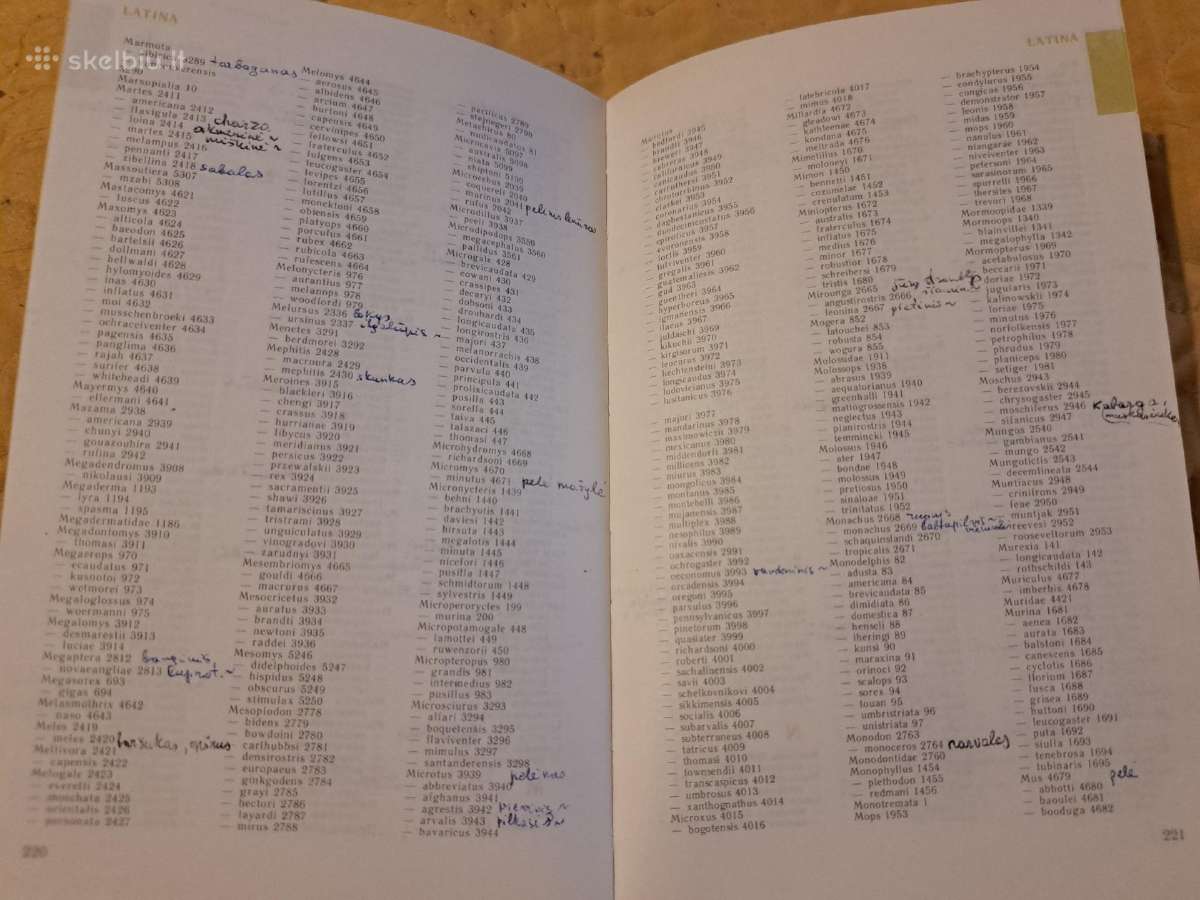 LATINA
skelbiu.lt
Marmota
— sibirica 4289 tarbaganas
Marsopialia 10
Martes 2411
— americana 2412
— flavigula 2413 charza
— foina 2414 akmeninė ~
— martes 2415 miškinė ~
— melampus 2416
— pennanti 2417
— zibellina 2418 sabalas
Massoutiera 5307
— mzabi 5308
Mastacomys 4621
— fuscus 4622
Maxomys 4623
— alticola 4624
— baeodon 4625
— bartelsii 4626
— dollmani 4627
— hellwaldi 4628
— hylomyoides 4629
— inas 4630
— inflatus 4631
— moi 4632
— musschenbroeki 4633
— ochraceiventer 4634
— pagensis 4635
— panglima 4636
— rajah 4637
— surifer 4638
— whiteheadi 4639
Mayermys 4640
— ellermani 4641
Mazama 2938
— americana 2939
— chunyi 2940
— gouazoubira 2941
— rufina 2942
Megadendromus 3908
— nikolausi 3909
Megaderma 1193
— lyra 1194
— spasma 1195
Megadermatidae 1186
Megadontomys 3910
— thomasi 3911
Megaerops 970
— ecaudatus 971
— kusnotoi 972
— wetmorei 973
Megaloglossus 974
— woermanni 975
Megalomys 3912
— desmarestii 3913
— luciae 3914
Megaptera 2812 banginis
— novaeangliae 2813 kuprot. ~
Megasorex 693
— gigas 694
Melasmothrix 4642
— naso 4643
Meles 2419
— meles 2420 barsukas, opšrus
Mellivora 2421
— capensis 2422
Melogale 2423
— everetti 2424
— moschata 2425
— orientalis 2426
— personata 2427
220
Melomys 4644
— aerosus 4645
— albidens 4646
— arcium 4647
— burtoni 4648
— capensis 4649
— cervinipes 4650
— fellowsi 4651
— fraterculus 4652
— fulgens 4653
— leucogaster 4654
— levipes 4655
— lorentzi 4656
— lutillus 4657
— moncktoni 4658
— obiensis 4659
— platyops 4660
— porculus 4661
— rubex 4662
— rubicola 4663
— rufescens 4664
Melonycteris 976
— aurantius 977
— melanops 978
— woodfordi 979
Melursus 2336 lokys
— ursinus 2337 ilgalūpis ~
Menetes 3291
— berdmorei 3292
Mephitis 2428
— macroura 2429
— mephitis 2430 skunkas
Meriones 3915
— blackleri 3916
— chengi 3917
— crassus 3918
— hurrianae 3919
— libycus 3920
— meridianus 3921
— persicus 3922
— przewalskii 3923
— rex 3924
— sacramentii 3925
— shawi 3926
— tamariscinus 3927
— tristrami 3928
— unguiculatus 3929
— vinogradovi 3930
— zarudnyi 3931
Mesembriomys 4665
— gouldi 4666
— macrurus 4667
Mesocricetus 3932
— auratus 3933
— brandti 3934
— newtoni 3935
— raddei 3936
Mesomys 5246
— didelphoides 5247
— hispidus 5248
— obscurus 5249
— stimulax 5250
Mesoplodon 2778
— bidens 2779
— bowdoini 2780
— carlhubbsi 2781
— densirostris 2782
— europaeus 2783
— ginkgodens 2784
— grayi 2785
— hectori 2786
— layardi 2787
— mirus 2788
— perrini 2789
— stejnegeri 2790
Metachirus 80
— nudicaudatus 81
Microcavia 5097
— australis 5098
— niata 5099
— shiptoni 5100
Microcebus 2039
— coquereli 2040
— murinus 2041 pelinis lemūras
— rufus 2042
Microdillus 3937
— peeli 3938
Microdipodops 3559
— megacephalus 3560
— pallidus 3561
Microgale 428
— brevicaudata 429
— cowani 430
— crassipes 431
— decaryi 432
— dobsoni 433
— drouhardi 434
— longicaudata 435
— longirostris 436
— majori 437
— melanorrachis 438
— occidentalis 439
— parvula 440
— principula 441
— prolixicaudata 442
— pusilla 443
— sorella 444
— taiva 445
— talazaci 446
— thomasi 447
Microhydromys 4668
— richardsoni 4669
Micromys 4670
— minutus 4671 pelė mažylė
Micronycteris 1439
— behni 1440
— brachyotis 1441
— daviesi 1442
— hirsuta 1443
— megalotis 1444
— minuta 1445
— nicefori 1446
— pusilla 1447
— schmidtorum 1448
— sylvestris 1449
Microperoryctes 199
— murina 200
Micropotamogale 448
— lamottei 449
— ruwenzorii 450
Micropteropus 980
— grandis 981
— intermedius 982
— pusillus 983
Microsciurus 3293
— alfari 3294
— boquetensis 3295
— flaviventer 3296
— mimulus 3297
— santanderensis 3298
Microtus 3939 pelėnas
— abbreviatus 3940
— afghanus 3941
— agrestis 3942 pievinis ~
— arvalis 3943 pilkasis ~
— bavaricus 3944
LATINA
Microtus
— bedfordi 3945
— breweri 3947
— cabrerae 3948
— californicus 3949
— canicaudus 3950
— carruthersi 3951
— chrotorrhinus 3952
— clarkei 3953
— coronarius 3954
— daghestanicus 3955
— duodecimcostatus 3956
— epiroticus 3957
— evoronensis 3958
— fortis 3959
— fulviventer 3960
— gregalis 3961
— guatemalensis 3962
— gud 3963
— guentheri 3964
— hyperboreus 3965
— igmanensis 3966
— ilaeus 3967
— juldaschi 3969
— kikuchii 3970
— kirgisorum 3971
— leucurus 3972
— liechtensteini 3973
— longicaudus 3974
— ludovicianus 3975
— lusitanicus 3976
— majori 3977
— mandarinus 3978
— maximowiczii 3979
— mexicanus 3980
— middendorfi 3981
— millicens 3982
— miurus 3983
— mongolicus 3984
— montanus 3985
— montebelli 3986
— mujanensis 3987
— multiplex 3988
— nesophilus 3989
— nivalis 3990
— oaxacensis 2991
— ochrogaster 3992
— oeconomus 3993 raudoninis ~
— orcadensis 3994
— oregoni 3995
— parvulus 3996
— pennsylvanicus 3997
— pinetorum 3998
— quasiater 3999
— richardsoni 4000
— roberti 4001
— sachalinensis 4002
— savii 4003
— schelkovnikovi 4004
— sikkimensis 4005
— socialis 4006
— subarvalis 4007
— subterraneus 4008
— tatricus 4009
— thomasi 4010
— townsendii 4011
— transcaspicus 4012
— umbrosus 4013
— xanthognathus 4014
Microxus 4015
— bogotensis 4016
— latebricola 4017
— minus 4018
Millardia 4672
— gleadowi 4673
— kathleenae 4674
— kondana 4675
— meltrada 4676
Mimetillus 1670
— moloneyi 1671
Mimon 1450
— bennetti 1451
— cozumelae 1452
— crenulatum 1453
Miniopterus 1672
— australis 1673
— fraterculus 1674
— inflatus 1675
— medius 1676
— minor 1677
— robustior 1678
— schreibersi 1679
— tristis 1680
Mirounga 2665 jūrų dramblį
— angustirostris 2666 šiaurinis ~
— leonina 2667 pietinis ~
Mogera 852
— latouchei 853
— robusta 854
— wogura 855
Molossidae 1911
Molossops 1938
— abrasus 1939
— aequatorianus 1940
— greenhalli 1941
— mattogrossensis 1942
— neglectus 1943
— planirostris 1944
— temmincki 1945
Molossus 1946
— ater 1947
— bondae 1948
— molossus 1949
— pretiosus 1950
— sinaloae 1951
— trinitatus 1952
Monachus 2668 ruonis
— monachus 2669 baltapilvis ~
— schauinslandi 2670
— tropicalis 2671
Monodelphis 82
— adusta 83
— americana 84
— brevicaudata 85
— dimidiata 86
— domestica 87
— henseli 88
— iheringi 89
— kunsi 90
— maraxina 91
— orinoci 92
— scalops 93
— sorex 94
— touan 95
— umbristriata 96
— unistriata 97
Monodon 2763
— monoceros 2764 narvalas
Monodontidae 2760
Monophyllus 1454
— plethodon 1455
— redmani 1456
Monotremata 1
Mops 1953
— brachypterus 1954
— condylurus 1955
— congicus 1956
— demonstrator 1957
— leonis 1958
— midas 1959
— mops 1960
— nanulus 1961
— niangarae 1962
— niveiventer 1963
— petersoni 1964
— sarasinorum 1965
— spurrelli 1966
— thersites 1967
— trevori 1968
Mormoopidae 1339
Mormoops 1340
— blainvillei 1341
— megalophylla 1342
Mormopterus 1969
— acetabulosus 1970
— beccarii 1971
— doriae 1972
— jugularis 1973
— kalinowskii 1974
— loriae 1975
— minutus 1976
— norfolkensis 1977
— petrophilus 1978
— phrudus 1979
— planiceps 1980
— setiger 1981
Moschus 2943
— berezovskii 2944
— chrysogaster 2945
— moschiferus 2946 kabarga,
— sifanicus 2947
Mungos 2540
— gambianus 2541
— mungo 2542
Mungotictis 2543
— decemlineata 2544
Muntiacus 2948
— crinifrons 2949
— feae 2950
— muntjak 2951
— reevesi 2952
— rooseveltorum 2953
Murexia 141
— longicaudata 142
— rothschildi 143
Muriculus 4677
— imberbis 4678
Muridae 4421
Murina 1681
— aenea 1682
— aurata 1683
— balstoni 1684
— canescens 1685
— cyclotis 1686
— florium 1687
— fusca 1688
— grisea 1689
— huttoni 1690
— leucogaster 1691
— puta 1692
— suilla 1693
— tenebrosa 1694
— tubinaris 1695
Mus 4679 pelė
— abbotti 4680
— baoulei 4681
— booduga 4682
221